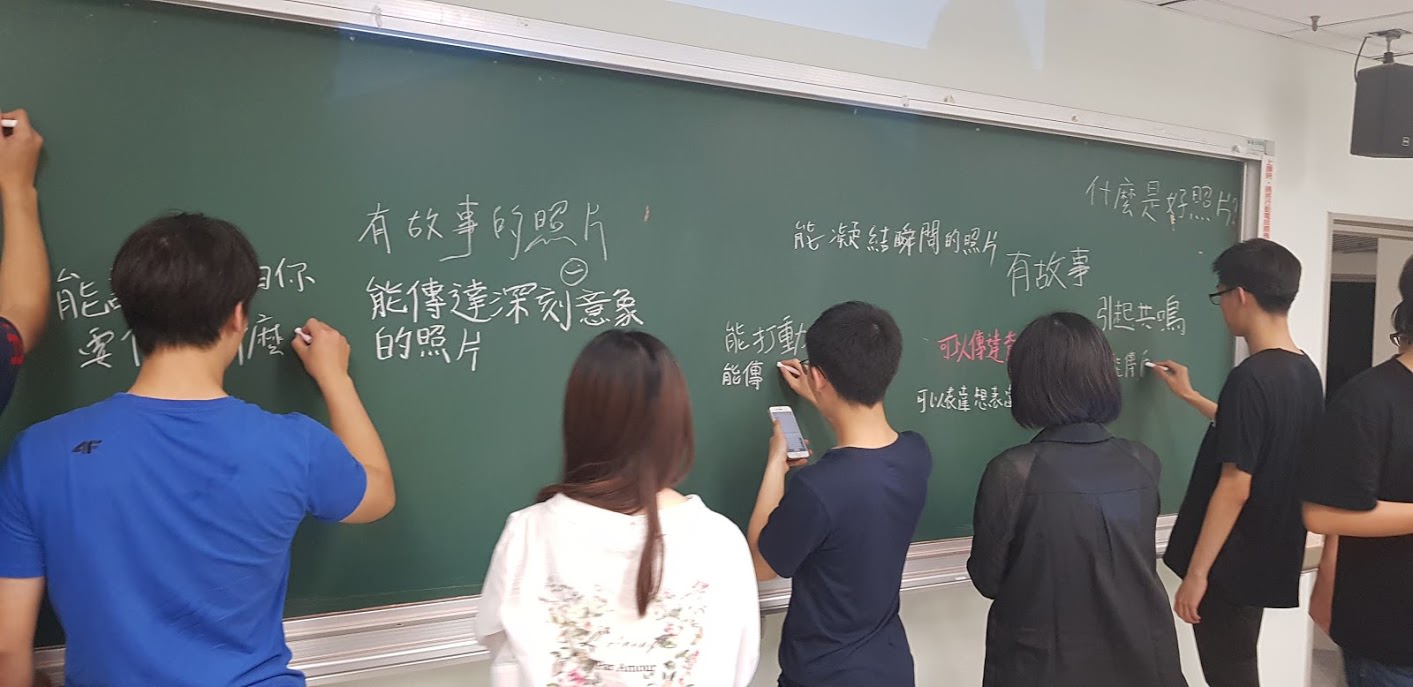 什麼是好照片?
有故事的照片
能凝結瞬間的照片
有故事
能 由你
能傳達深刻意象
的照片
要 麼
引起共鳴
能打動
能傳
可以傳達
可以表達想表達
4F
Par Amour